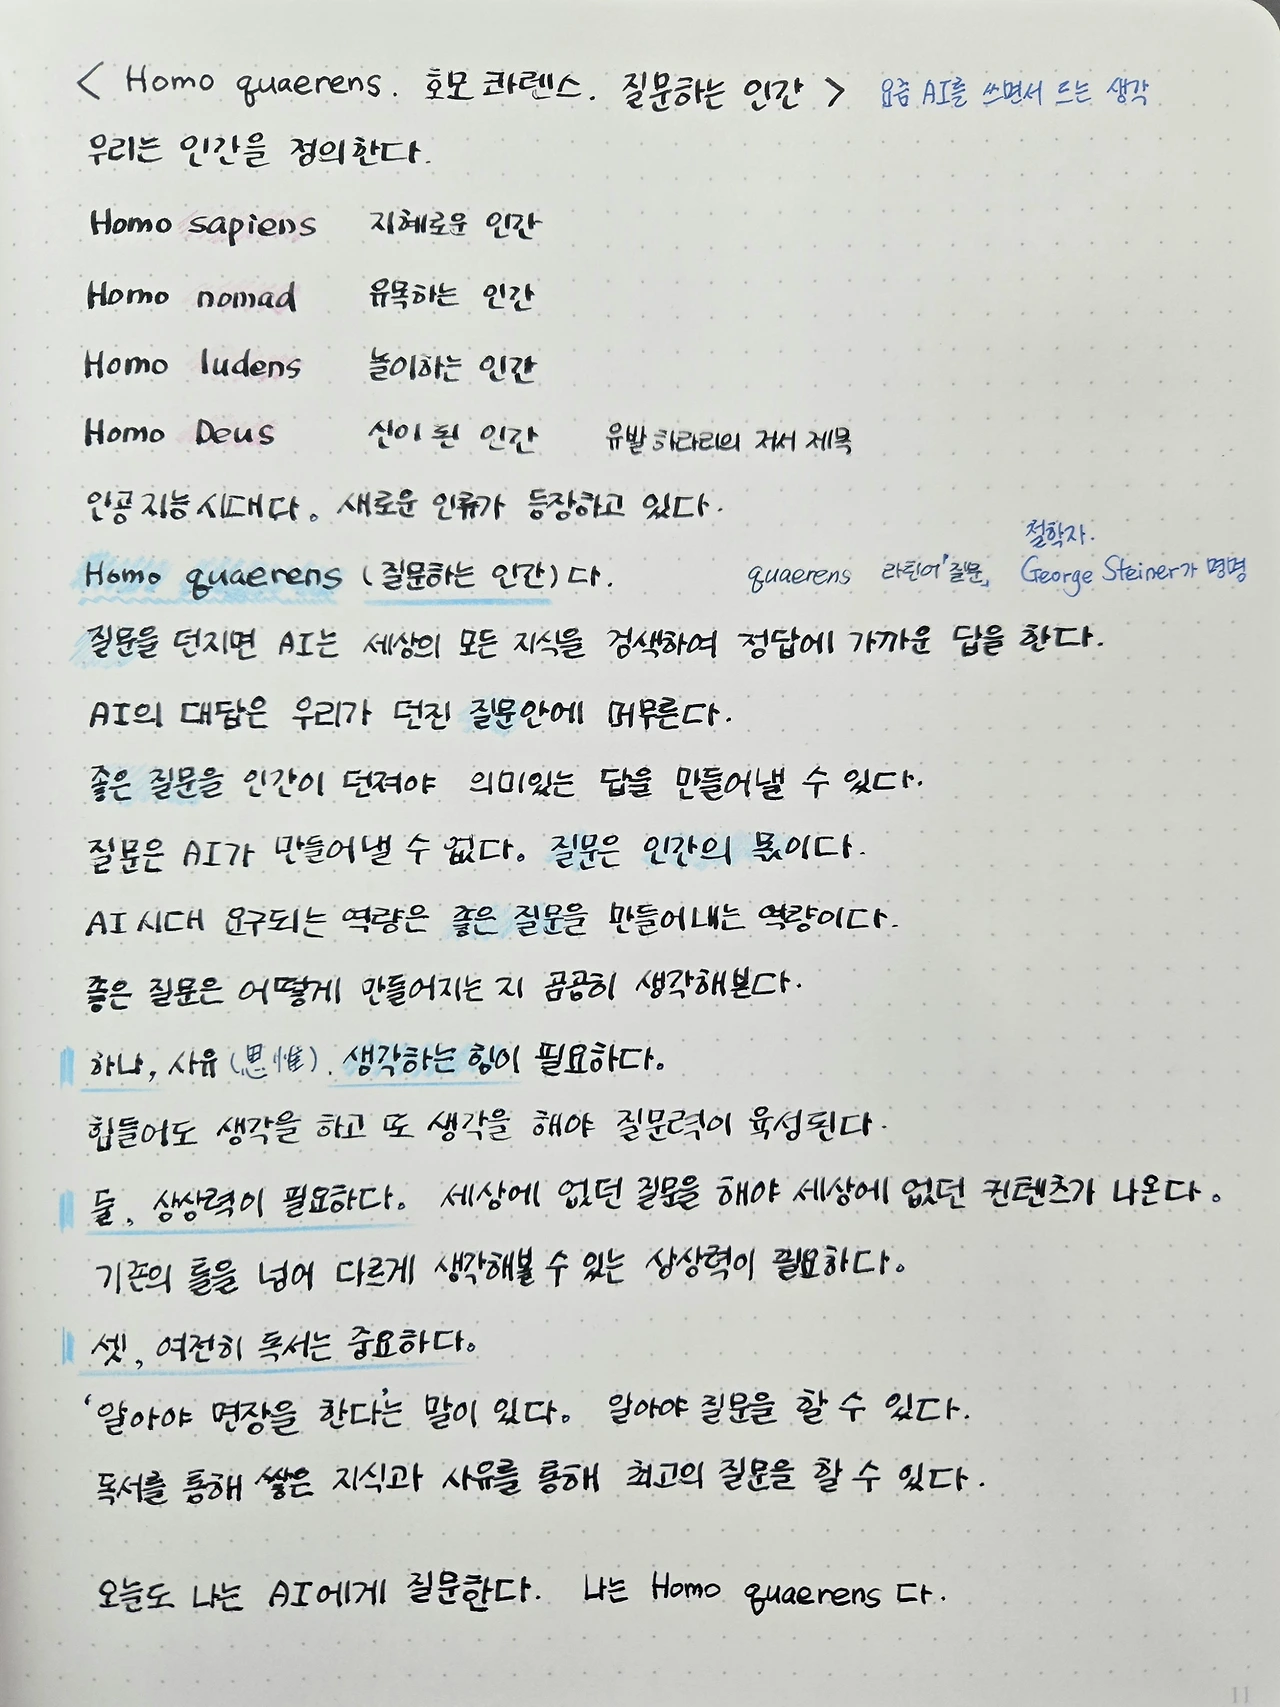 < Homo quaerens. 호모 콰렌스. 질문하는 인간 > 요즘 AI를 쓰면서 드는 생각
우리는 인간을 정의한다.
Homo sapiens 지혜로운 인간
Homo nomad 유목하는 인간
Homo ludens 놀이하는 인간
Homo Deus 신이 된 인간 유발 하라리의 저서 제목
인공지능시대다. 새로운 인류가 등장하고 있다.
철학자.
Homo quaerens (질문하는 인간)다. quaerens 라틴어 '질문' George Steiner가 명명
질문을 던지면 AI는 세상의 모든 지식을 검색하여 정답에 가까운 답을 한다.
AI의 대답은 우리가 던진 질문안에 머무른다.
좋은 질문을 인간이 던져야 의미있는 답을 만들어낼 수 있다.
질문은 AI가 만들어낼 수 없다. 질문은 인간의 몫이다.
AI시대 요구되는 역량은 좋은 질문을 만들어내는 역량이다.
좋은 질문은 어떻게 만들어지는 지 곰곰히 생각해본다.
하나, 사유(思惟). 생각하는 힘이 필요하다.
힘들어도 생각을 하고 또 생각을 해야 질문력이 육성된다.
둘, 상상력이 필요하다. 세상에 없던 질문을 해야 세상에 없던 컨텐츠가 나온다.
기존의 틀을 넘어 다르게 생각해볼 수 있는 상상력이 필요하다.
셋, 여전히 독서는 중요하다.
'알아야 면장을 한다'는 말이 있다. 알아야 질문을 할 수 있다.
독서를 통해 쌓은 지식과 사유를 통해 최고의 질문을 할 수 있다.
오늘도 나는 AI에게 질문한다. 나는 Homo quaerens 다.
11